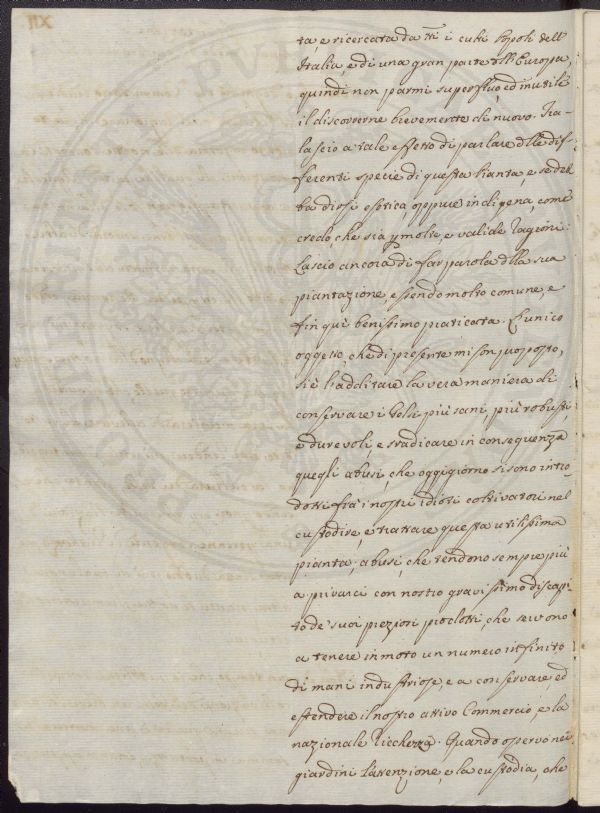 ta, e ricercata da tti i culti Popoli dell'
Italia, e di una gran parte dll'Europa,
quindi non parmi superfluo, ed inutile
il discorrerne brevemente di nuovo. Tra-
lascio a tale effetto di parlare dlle dif-
ferenti specie di questa Pianta, e se deb-
ba dirsi esotica, oppure indigena, come
credo, che sia p molte, e valide ragioni:
Lascio ancora di far parola dlla sua
piantazione, essendo molto comune, e
fin qui benissimo praticata. L'unico
oggetto, che di presente mi son proposto,
si è l'additare la vera maniera di
conservare i Gelsi più sani, più robusti,
e durevoli, e sradicare in conseguenza
quegli abusi, che oggigiorno si sono intro-
dotti frà i nostri idioti coltivatori nel
custodire, e trattare questa utilissima
pianta; abusi, che tendono sempre più
a privarci con nostro gravissimo discapi-
to de' suoi preziosi prodotti, che servono
a tenere in moto un numero infinito
di mani industriose, e a conservare, ed
estendere il nostro attivo Commercio, e la
nazionale Ricchezza. Quando osservo nei
giardini l'attenzione, e la custodia, che